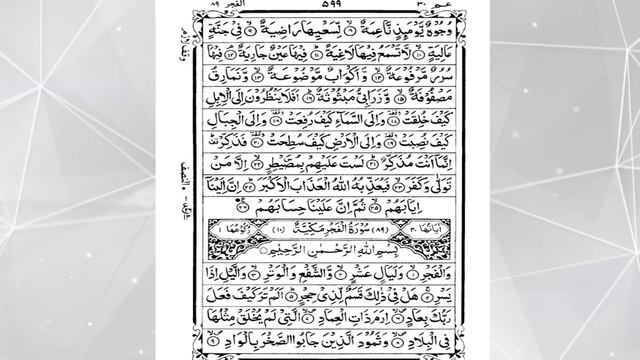 عـم ٣٠ ٥٩٩ الفجر ٨٩
وُجُوْهٌ يَّوْمَىِٕذٍ نَّاعِمَةٌ ۙ﴿٨﴾ لِّسَعْيِهَا رَاضِيَةٌ ۙ﴿٩﴾ فِیْ جَنَّةٍ
عَالِيَةٍ ۙ﴿١٠﴾ لَّا تَسْمَعُ فِيْهَا لَاغِيَةً ؕ﴿١١﴾ فِيْهَا عَيْنٌ جَارِيَةٌ ۘ﴿١٢﴾ فِيْهَا
سُرُرٌ مَّرْفُوْعَةٌ ۙ﴿١٣﴾ وَّ اَكْوَابٌ مَّوْضُوْعَةٌ ۙ﴿١٤﴾ وَّ نَمَارِقُ
مَصْفُوْفَةٌ ۙ﴿١٥﴾ وَّ زَرَابِیُّ مَبْثُوْثَةٌ ؕ﴿١٦﴾ اَفَلَا يَنْظُرُوْنَ اِلَی الْاِبِلِ
كَيْفَ خُلِقَتْ ۥ﴿١٧﴾ وَ اِلَی السَّمَآءِ كَيْفَ رُفِعَتْ ۥ﴿١٨﴾ وَ اِلَی الْجِبَالِ
كَيْفَ نُصِبَتْ ۥ﴿١٩﴾ وَ اِلَی الْاَرْضِ كَيْفَ سُطِحَتْ ۥ﴿٢٠﴾ فَذَكِّرْ ؕ۫
اِنَّمَاۤ اَنْتَ مُذَكِّرٌ ؕ﴿٢١﴾ لَسْتَ عَلَيْهِمْ بِمُصَۜيْطِرٍ ۙ﴿٢٢﴾ اِلَّا مَنْ
تَوَلّٰی وَ كَفَرَ ۙ﴿٢٣﴾ فَيُعَذِّبُهُ اللّٰهُ الْعَذَابَ الْاَكْبَرَ ؕ﴿٢٤﴾ اِنَّ اِلَيْنَاۤ
اِيَابَهُمْ ۙ﴿٢٥﴾ ثُمَّ اِنَّ عَلَيْنَا حِسَابَهُمْ ﴿٢٦﴾
اٰيَاتُهَا ٣٠ (٨٩) سُوْرَةُ الْفَجْرِ مَكِّيَّةٌ (١٠) رُكُوْعُهَا ١
بِسْمِ اللّٰهِ الرَّحْمٰنِ الرَّحِيْمِ
وَ الْفَجْرِ ۙ﴿١﴾ وَ لَيَالٍ عَشْرٍ ۙ﴿٢﴾ وَّ الشَّفْعِ وَ الْوَتْرِ ۙ﴿٣﴾ وَ الَّيْلِ اِذَا
يَسْرِ ۚ﴿٤﴾ هَلْ فِیْ ذٰلِكَ قَسَمٌ لِّذِیْ حِجْرٍ ؕ﴿٥﴾ اَلَمْ تَرَ كَيْفَ فَعَلَ
رَبُّكَ بِعَادٍ ۪ۙ﴿٦﴾ اِرَمَ ذَاتِ الْعِمَادِ ۪ۙ﴿٧﴾ الَّتِیْ لَمْ يُخْلَقْ مِثْلُهَا
فِی الْبِلَادِ ۪ۙ﴿٨﴾ وَ ثَمُوْدَ الَّذِيْنَ جَابُوا الصَّخْرَ بِالْوَادِ ۪ۙ﴿٩﴾
وقف لازم
النصف